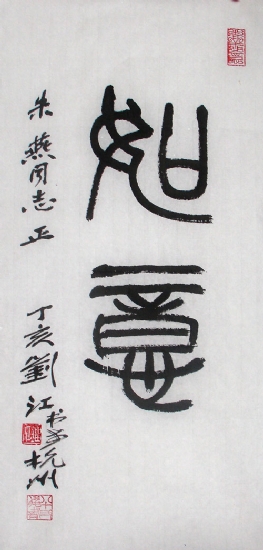 如意
朱燕同志正
丁亥劉江书于杭州